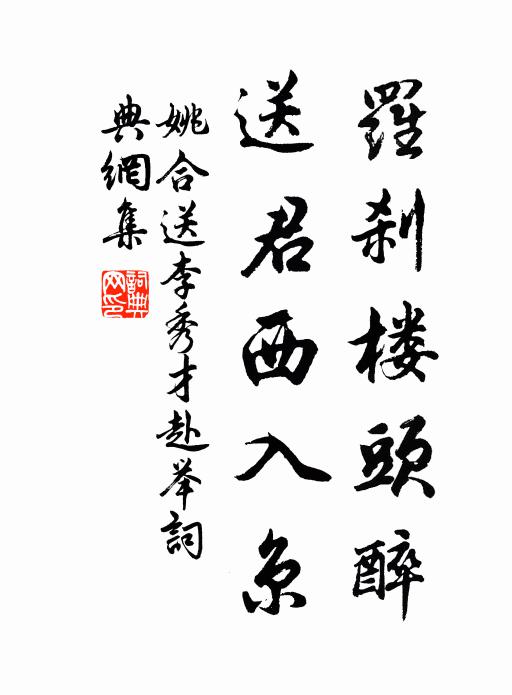 羅刹楼頭醉
送君西入京
姚合送李秀才赴举詞
典網集
詞典網印